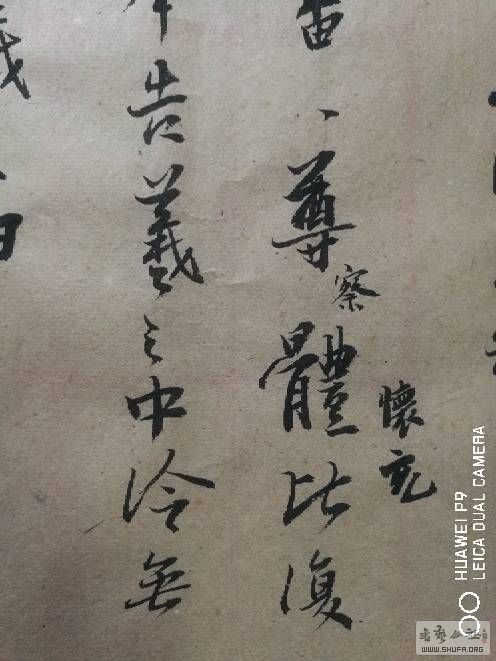 懷充
察
尊體比復
告羲之中冷無
HUAWEI P9
LEICA DUAL CAMERA
书艺公社
WWW.SHUFA.ORG